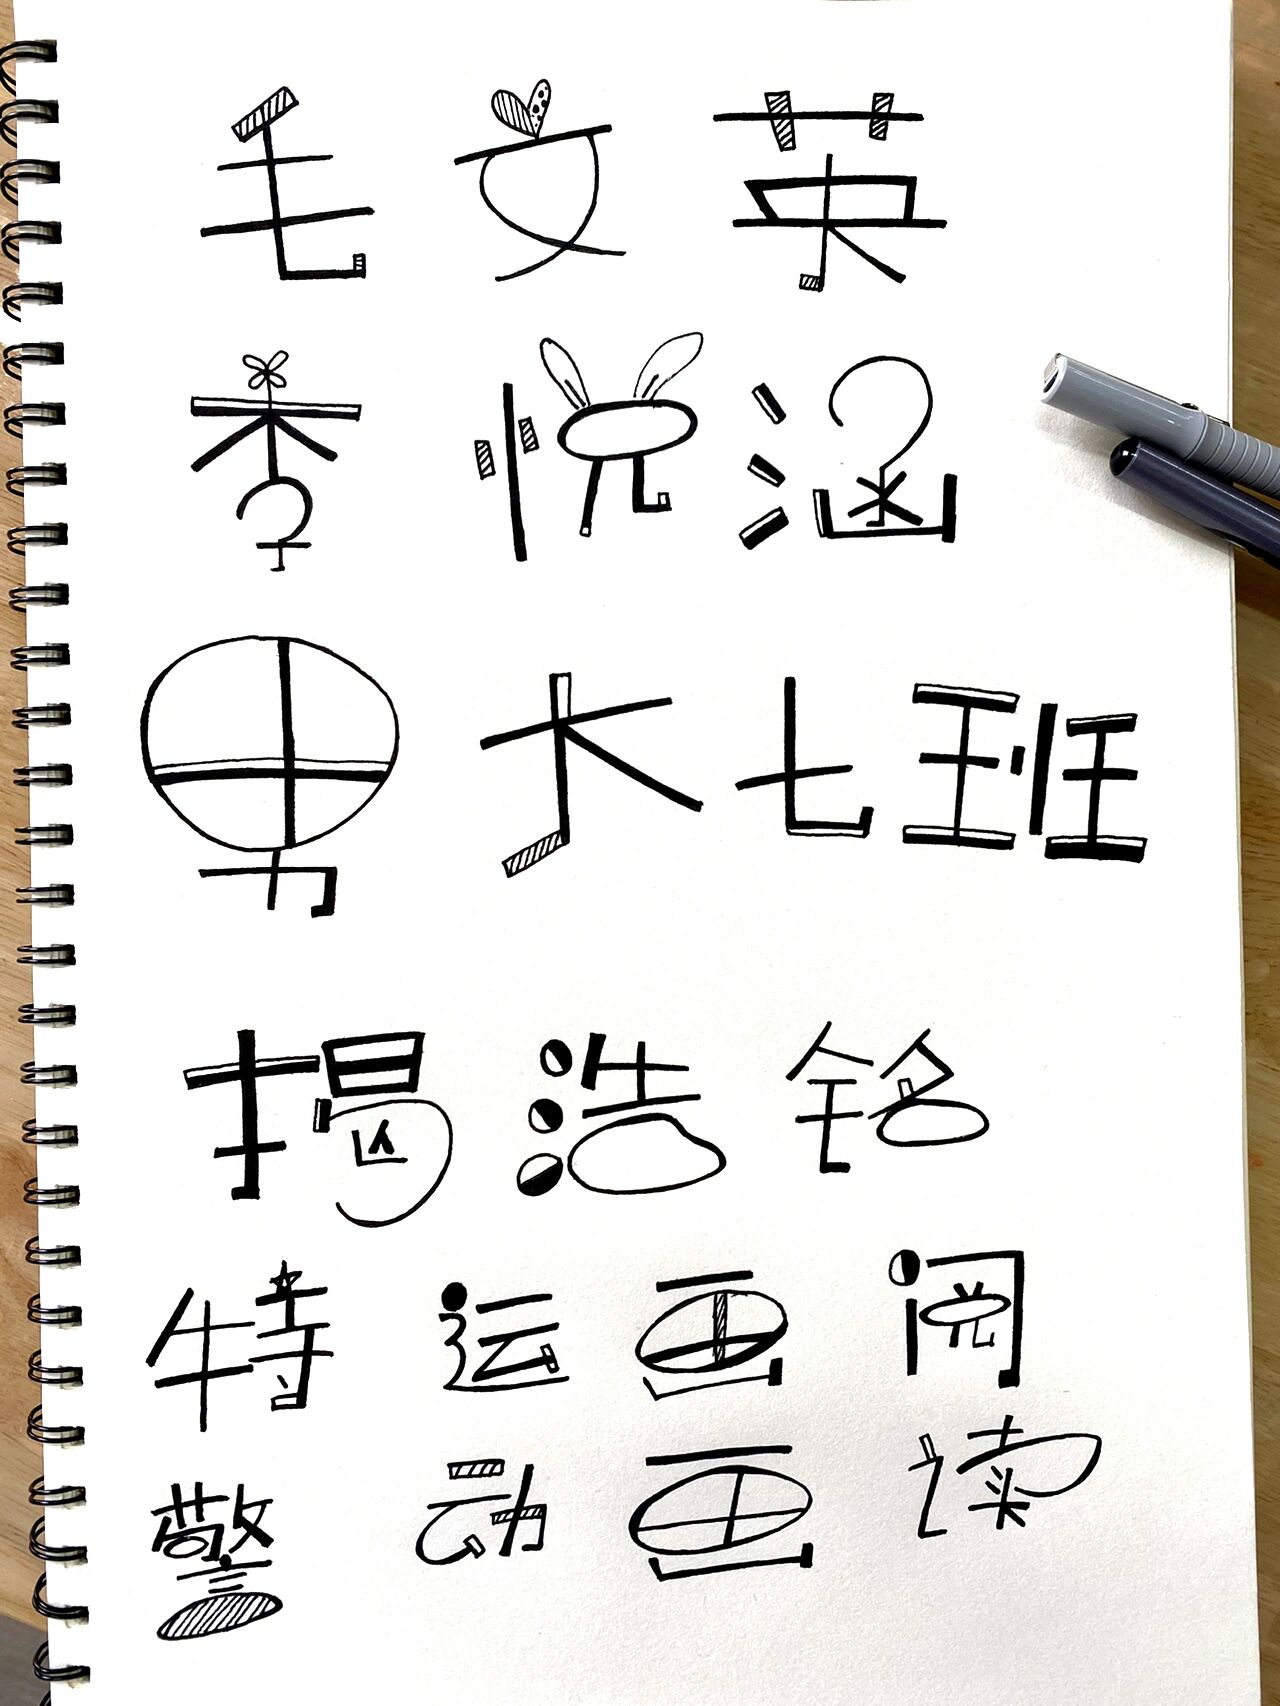 毛文英
李悦涵
男 大七班
揭浩铭
特 运 画 阅
警 动 画 读